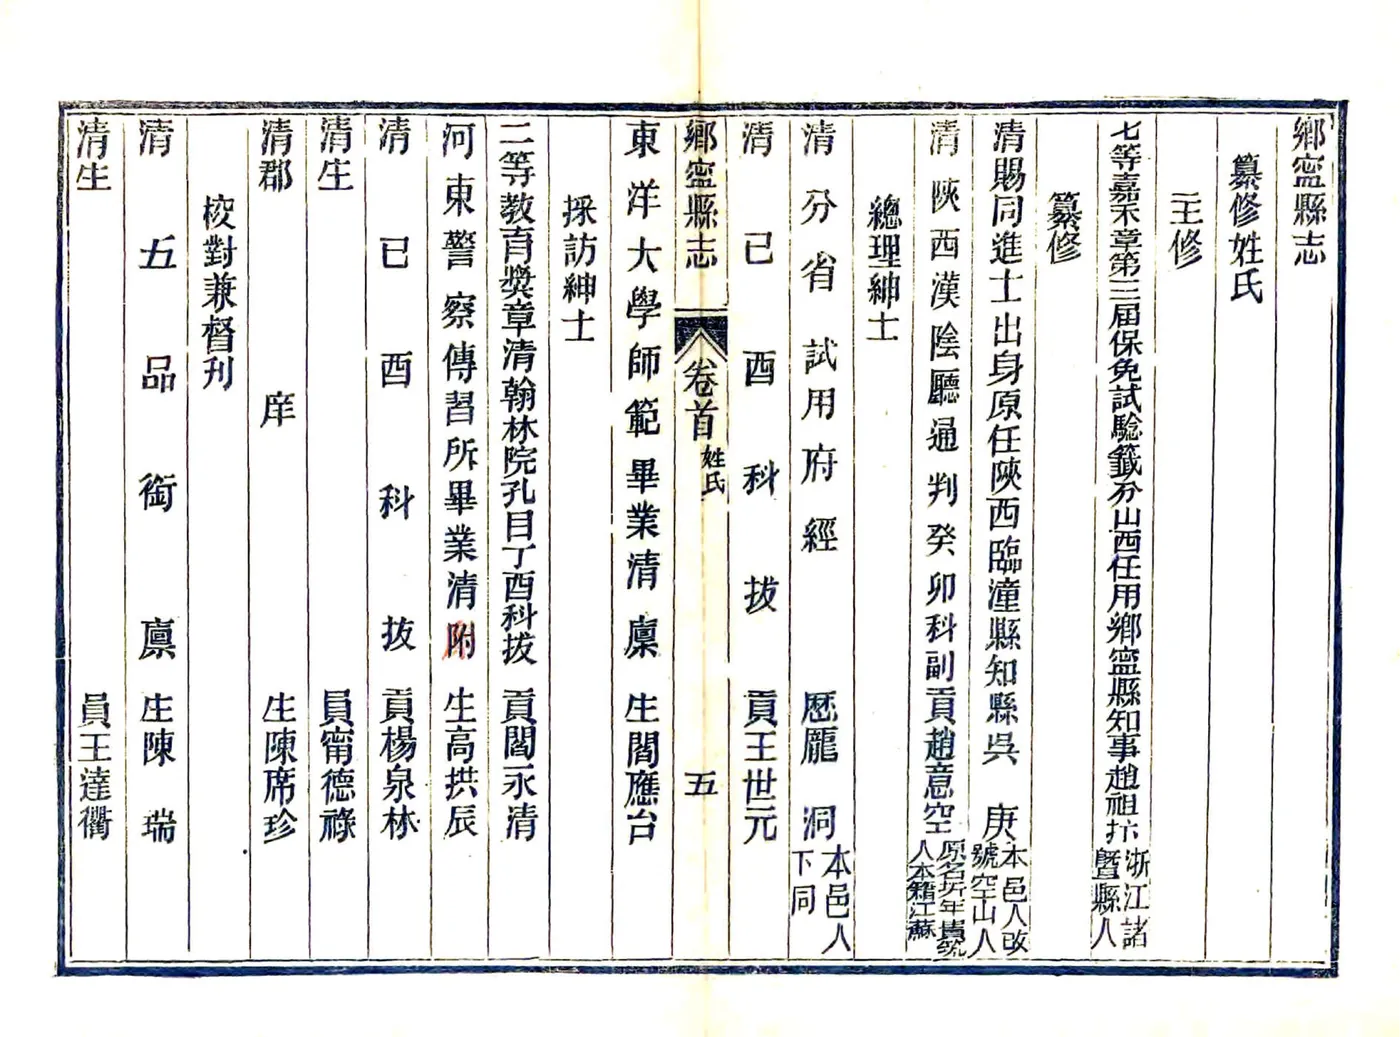 鄉寧縣志
纂修姓氏
主修
七等嘉禾章第三屆保免試驗籤分山西任用鄉寧縣知事趙祖抃浙江諸暨縣人
纂修
清賜同進士出身原任陝西臨潼縣知縣吳庚本邑人改號空山人
清陝西漢陰廳通判癸卯科副貢趙意空原名圻年貴筑人本籍江蘇
總理紳士
清分省試用府經歷龐洞本邑人下同
清己酉科拔貢王世元
鄉寧縣志 卷首 姓氏 五
東洋大學師範畢業清廩生閻應台
採訪紳士
二等教育獎章清翰林院孔目丁酉科拔貢閻永清
河東警察傳習所畢業清附生高拱辰
清己酉科拔貢楊泉林
清生員甯德祿
清郡庠生陳席珍
校對兼督刊
清五品銜廩生陳瑞
清生員王達衢